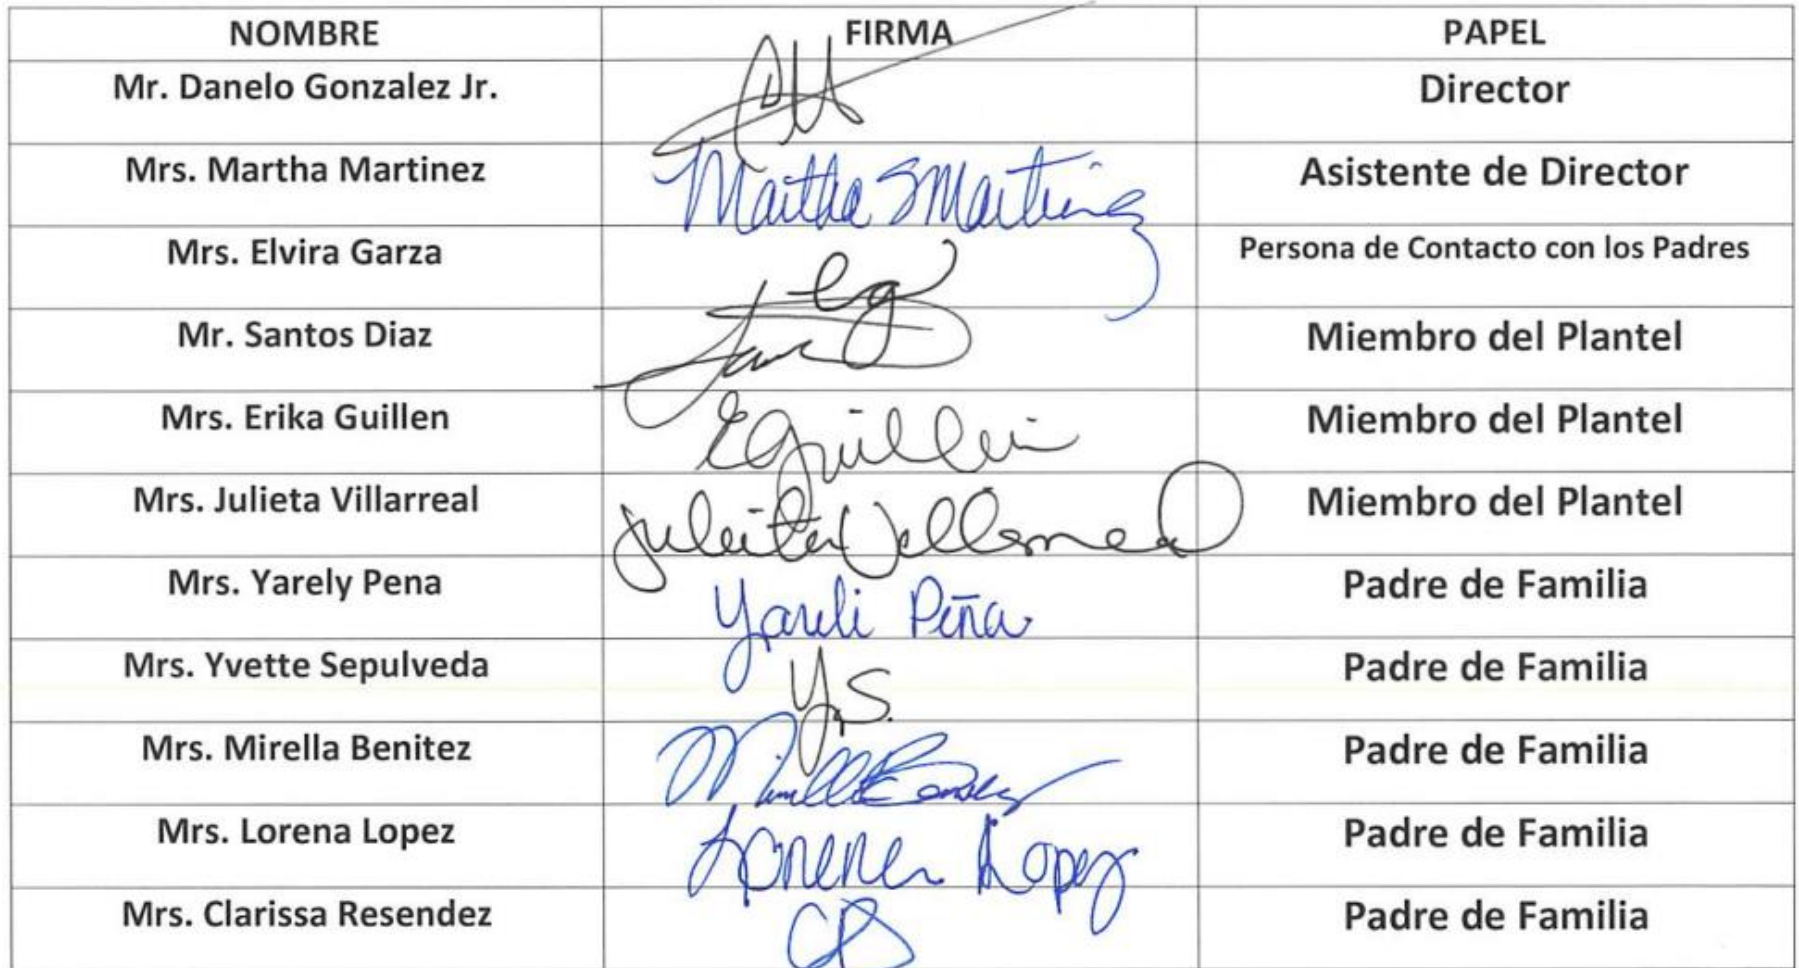 NOMBRE FIRMA PAPEL
Mr. Danelo Gonzalez Jr. Director
Mrs. Martha Martinez Martha S Martinez Asistente de Director
Mrs. Elvira Garza eg Persona de Contacto con los Padres
Mr. Santos Diaz Miembro del Plantel
Mrs. Erika Guillen EGuillen Miembro del Plantel
Mrs. Julieta Villarreal Julieta Villarreal Miembro del Plantel
Mrs. Yarely Pena Yareli Peña Padre de Familia
Mrs. Yvette Sepulveda Y.S. Padre de Familia
Mrs. Mirella Benitez Padre de Familia
Mrs. Lorena Lopez Lorena Lopez Padre de Familia
Mrs. Clarissa Resendez CR Padre de Familia